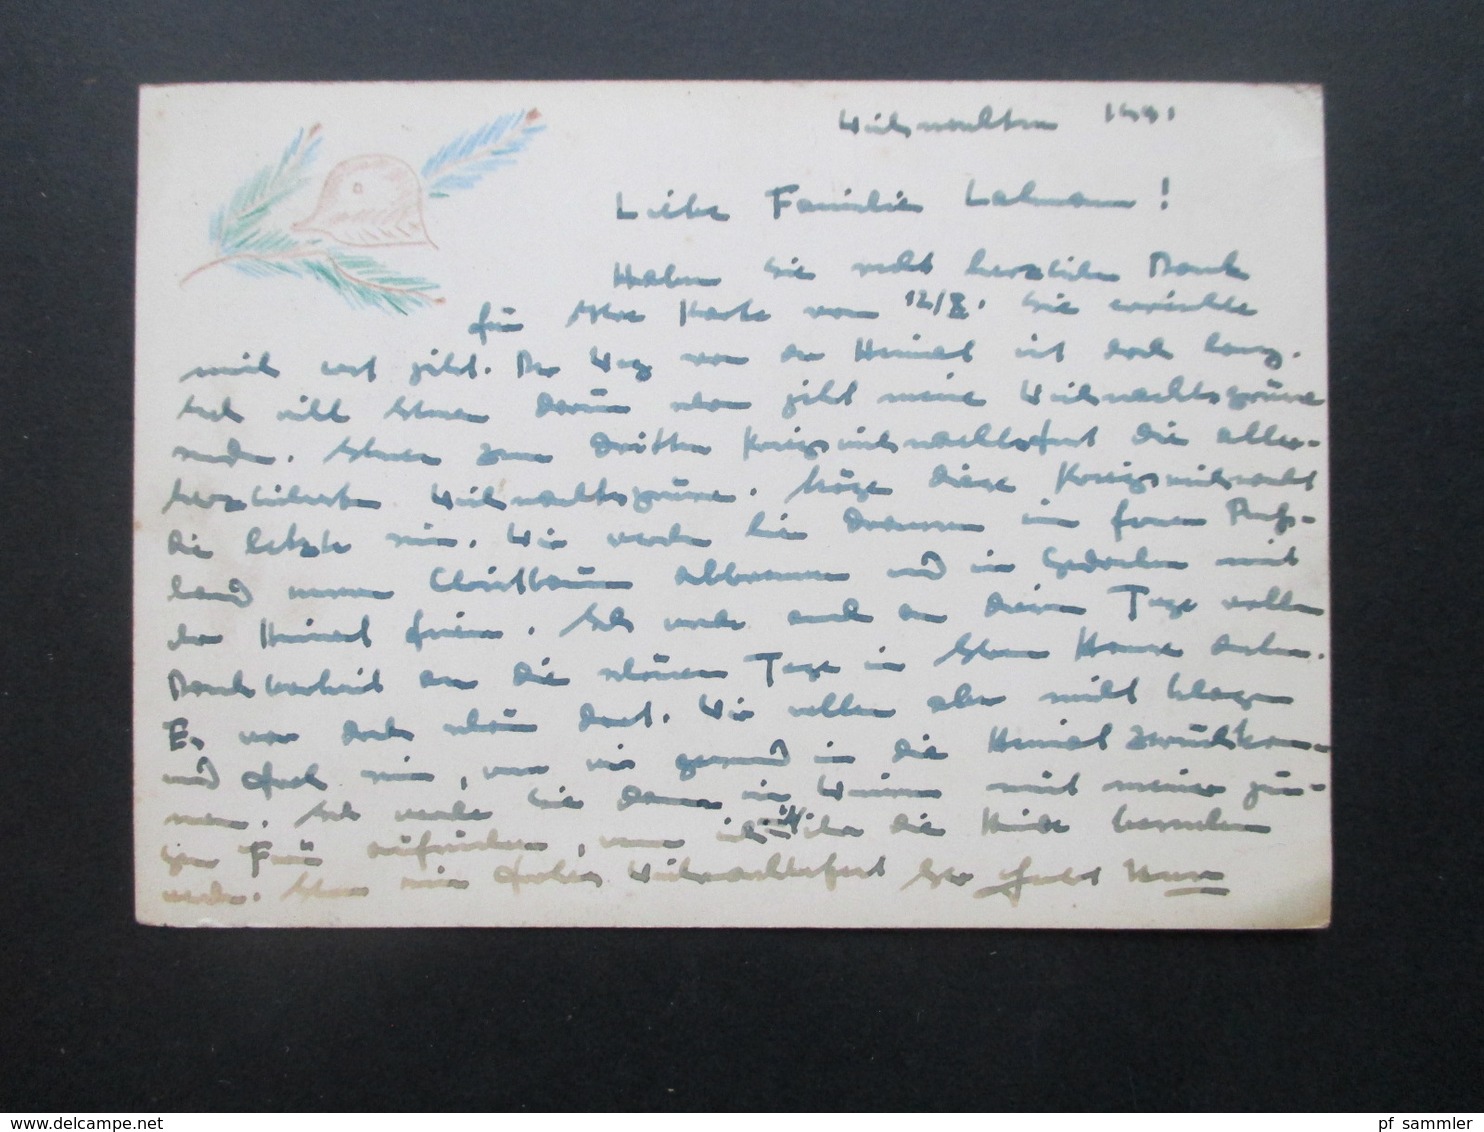 Weihnachten 1941
Liebe Familie Lahmann!
Haben Sie recht herzlichen Dank
für Ihre Karte vom 12/X. Sie erreichte
mich erst jetzt. Der Weg von der Heimat ist doch lang.
Ich will Ihnen darum schon jetzt meine Weihnachtsgrüsse
senden. Ihnen zum dritten Kriegsweihnachtsfest die aller-
herzlichsten Weihnachtsgrüsse. Möge diese Kriegsweihnacht
die letzte sein. Wir werden hier draussen im fernen Russ-
land unseren Christbaum abbrennen und in Gedanken mit
der Heimat feiern. Ich werde auch an diesem Tage voller
Dankbarkeit an die schönen Tage in Ihrem Hause denken.
Es war doch schön dort. Wir wollen aber nicht klagen
und froh sein, wenn wir gesund in die Heimat zurückkom-
men. Ich werde Sie dann in meiner jun-
gen Frau aufsuchen, wenn ich die
werde. Ihnen ein frohes Weihnachtsfest Ihr
pf sammler